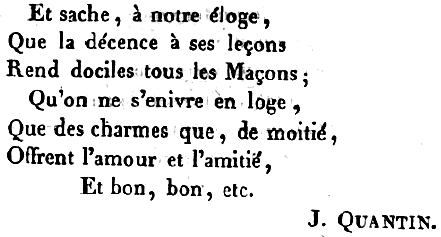 Et sache, à notre éloge,
Que la décence à ses leçons
Rend dociles tous les Maçons;
Qu'on ne s'enivre en loge,
Que des charmes que, de moitié,
Offrent l'amour et l'amitié,
Et bon, bon, etc.
J. QUANTIN.